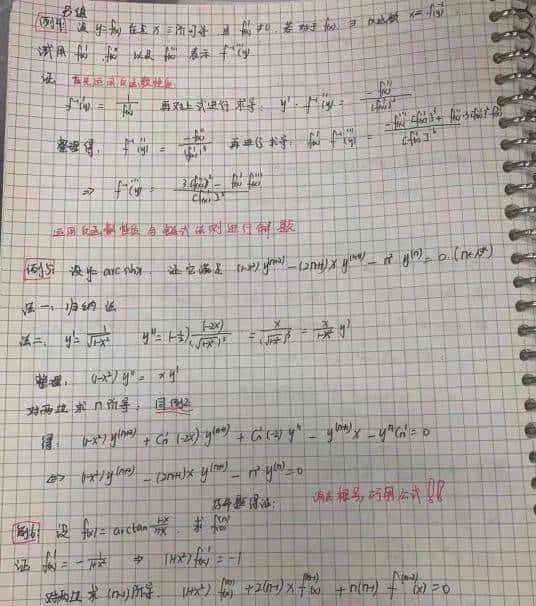 B组
例4: 设 y=f(x) 在点 x 三阶可导 且 f'(x)≠0. 若 f(x) 存在反函数 x=f⁻¹(y)
试用 f'(x), f''(x) 以及 f'''(x) 表示 f⁻¹'''(y)
证
f⁻¹'(y) = 1/f'(x) 再对上式进行求导: y'·f⁻¹''(y) = -f''(x)/[f'(x)]²
整理得, f⁻¹''(y) = -f''(x)/[f'(x)]³ 再进行求导, f'(x) f⁻¹'''(y) =
⇒ f⁻¹'''(y) =
运用反函数性质与链式法则进行解题
例5: 设 y=arcsinx. 证它满足 (1-x²)y⁽ⁿ⁺²⁾-(2n+1)xy⁽ⁿ⁺¹⁾-n²y⁽ⁿ⁾=0.
法一: 归纳法
法二、 y'=1/√(1-x²) y''=(-½)(-2x)/(√(1-x²))³ = x/(√(1-x²))³ = x/(1-x²) y'
整理. (1-x²)y''=xy'
对两边求n阶导: 同例2
得. (1-x²)y⁽ⁿ⁺²⁾+Cₙ¹(-2x)y⁽ⁿ⁺¹⁾+Cₙ²(-2)yⁿ-y⁽ⁿ⁺¹⁾x-yⁿCₙ¹=0
⇔ (1-x²)y⁽ⁿ⁺²⁾-(2n+1)xy⁽ⁿ⁺¹⁾-n²y⁽ⁿ⁾=0
故命题得证: 消去根号, 巧用公式!!
例6: 设 f(x)=arctan (1-x)/(1+x). 求 f⁽ⁿ⁾(x)
证 f'(x)=-1/(1+x²) ⇒ (1+x²)f'(x)=-1
对两边求(n+1)阶导. (1+x²)f(x)+2(n+1)xf(x)+n(n+1)f(x)=0